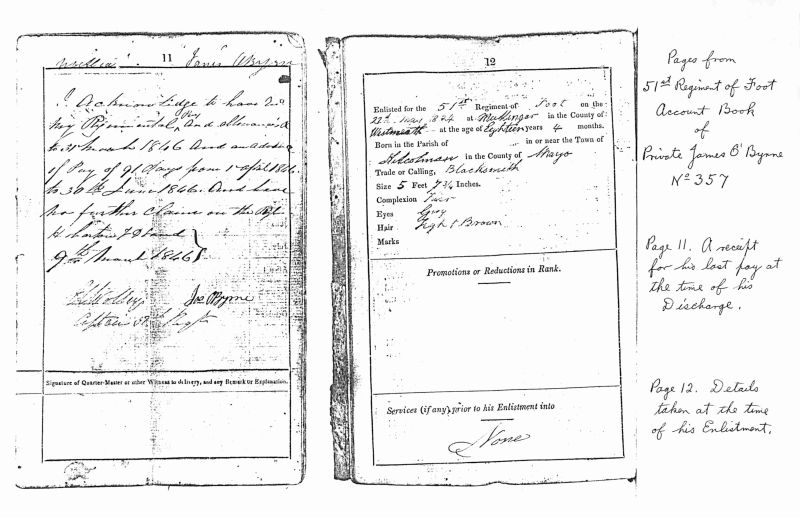 11
James O'Byrne
I Acknowledge to have
my Regimental Pay And allowances
to 31st March 1846 And an advance
of Pay of 91 days from 1st April 1846
to 30th June 1846. And have
no further Claims on the
9th March 1846
Jas OByrne
Captain 51st Regt
Signature of Quarter-Master or other Witness to delivery, and any Remark or Explanation.
12
Enlisted for the 51st Regiment of Foot on the
22nd May 1824 at Mullingar in the County of
Westmeath at the age of Eighteen years 4 months.
Born in the Parish of in or near the Town of
Kilcolman in the County of Mayo
Trade or Calling, Blacksmith
Size 5 Feet 7 3/4 Inches.
Complexion Fair
Eyes Grey
Hair Light Brown
Marks
Promotions or Reductions in Rank.
Services (if any) prior to his Enlistment into
None
Pages from
51st Regiment of Foot
Account Book
of
Private James O'Byrne
No 357
Page 11. A receipt
for his last pay at
the time of his
Discharge.
Page 12. Details
taken at the time
of his Enlistment.